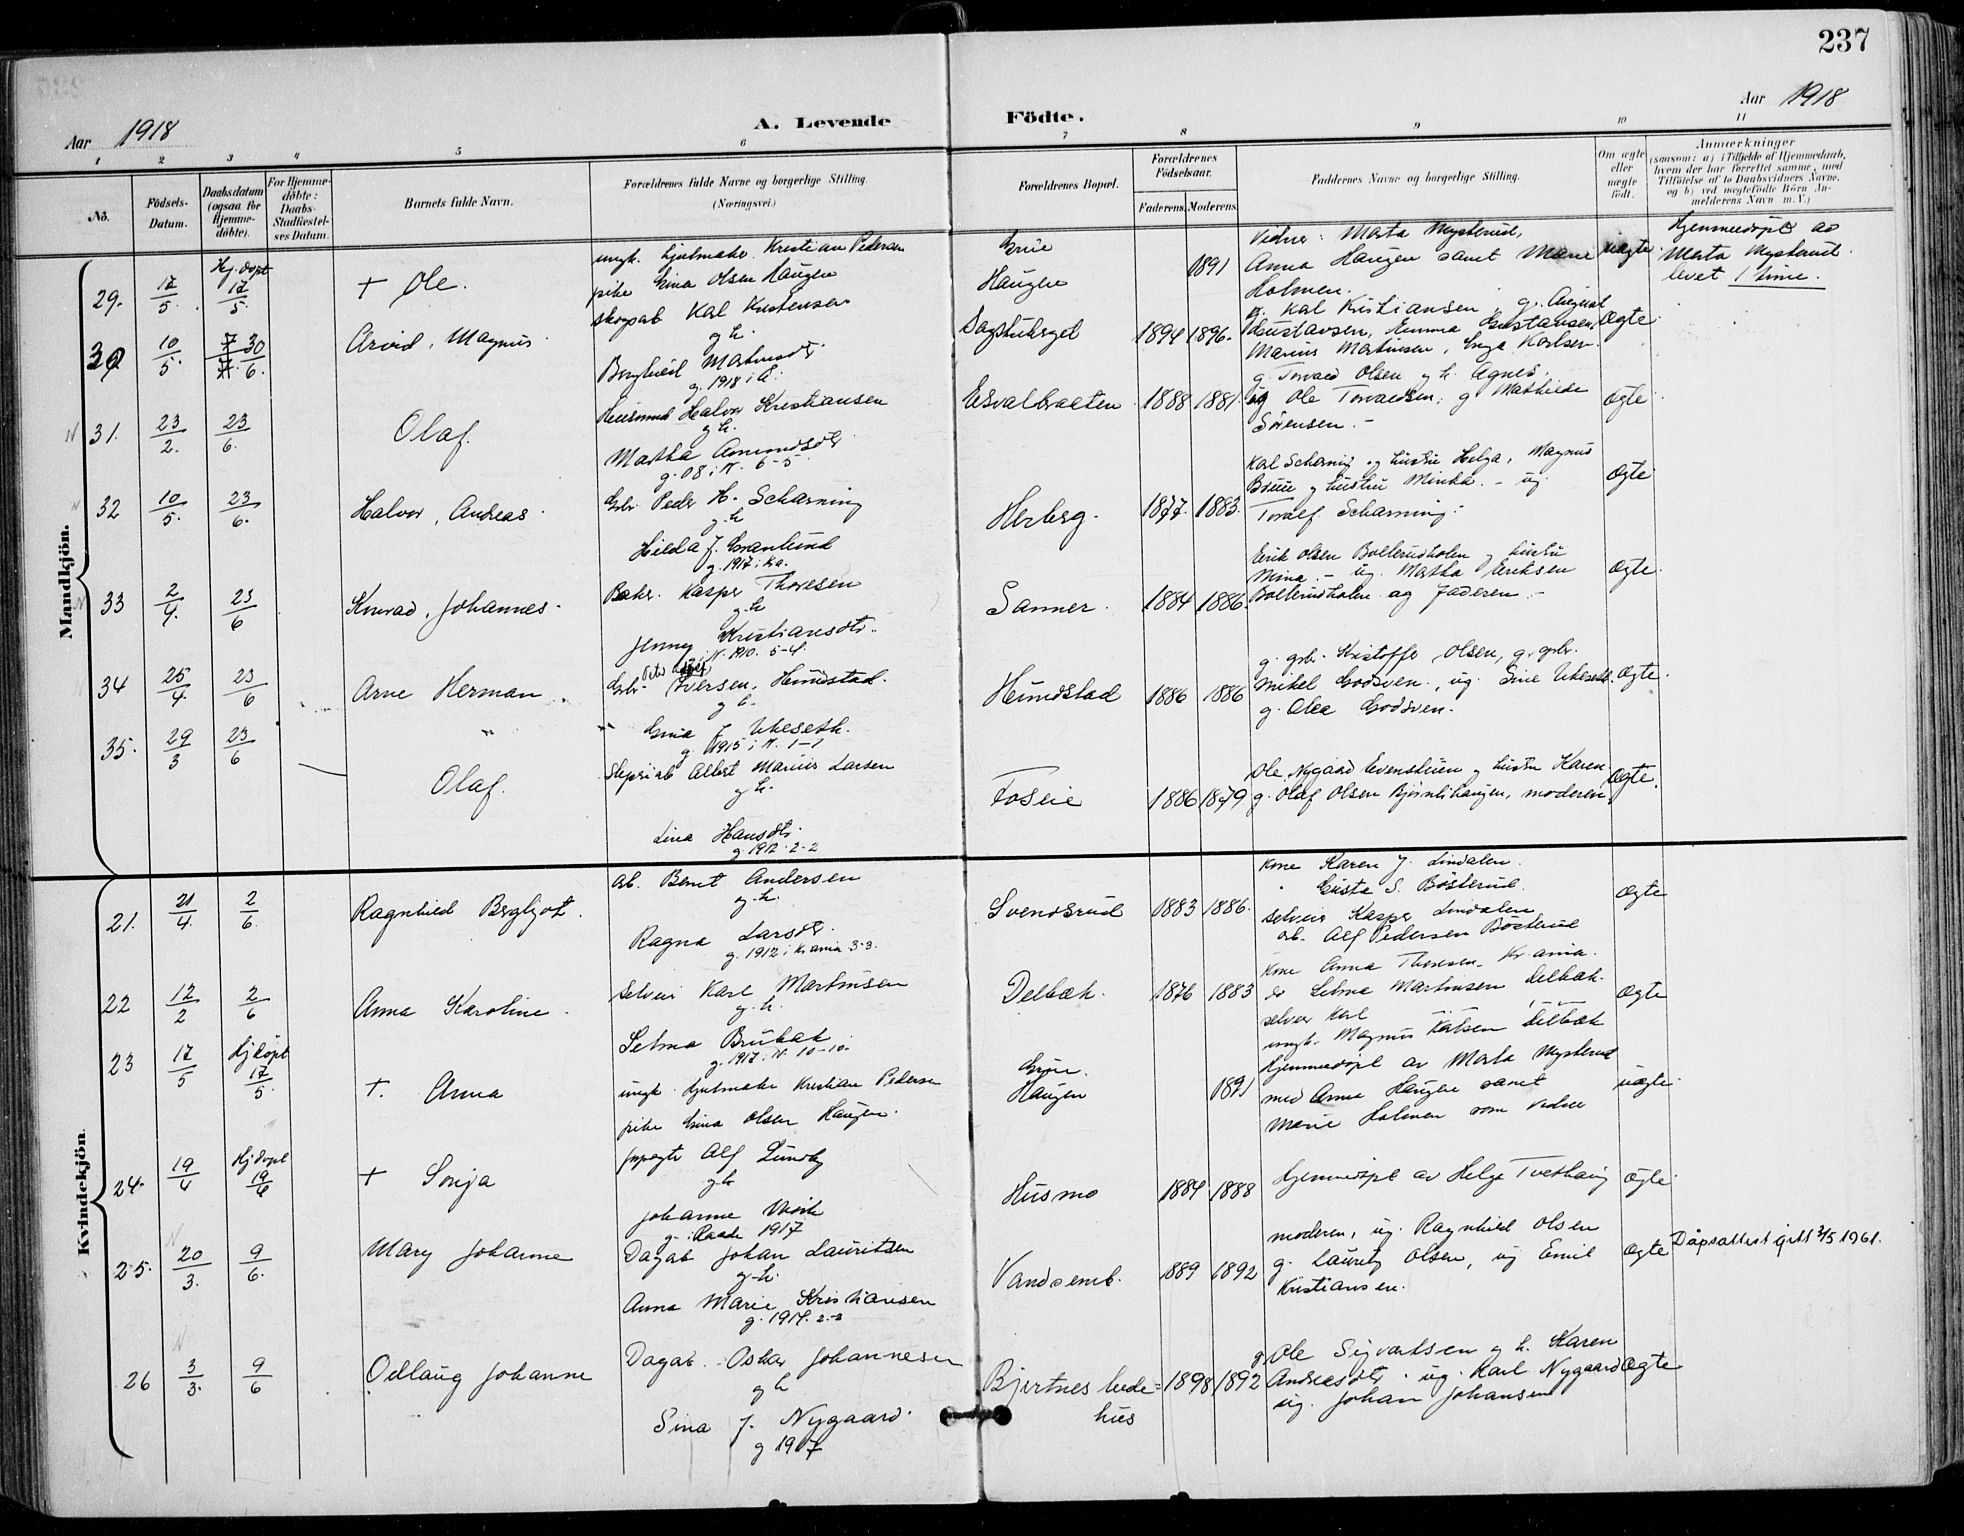 237
Aar 1918
A. Levende Födte.
Aar 1918
1 2 3 4 5 6 7 8 9 10 11
No.
Födsels-Datum.
Daabsdatum (ogsaa for Hjemme-döbte).
For Hjemme-döbte: Daabs-Stadfæstel-ses Datum.
Barnets fulde Navn.
Forældrenes fulde Navne og borgerlige Stilling.
(Næringsvei.)
Forældrenes Bopæl.
Forældrenes Födselsaar.
Faderens. Moderens.
Faddernes Navne og borgerlige Stilling.
Om ægte eller uægte födt.
Anmærkninger
(saasom: a) i Tilfælde af Hjemmedaab,
hvem der har forrettet samme, med
Tilföielse af to Daabsvidners Navne,
og b) ved uegtefödte Börn An-
melderens Navn m. V.)
Mandkjön.
29. 17/5. Hj. döpt 17/5. + Ole.
ungk. hjulmaker Kristian Pedersen
pike Gina Olsen Haugen
Grue
Haugen
1891
Vidner: Marta Mysterud,
Anna Haugen samt Marie
Holmen.
uægte
Hjemmedöpt av
Marta Mysterud
levet 1 time.
30 10/5. 30/6. Arvid, Magnus
skogsab Kal Kristensen
g. h.
Borghild Mathisdtr.
g. 1918 i
1894 1896.
g. Kal Kristiansen, g. August
Gustavsen, Emma Gustavsen,
Marius Martinsen, Inga Karlsen.
Ægte
31. 23/2. 23/6. Olaf.
Husmand Halvor Kristiansen
g. h.
Martha Amundsdtr.
g. 08 i N. 6-5
Esvalbraaten 1888 1881
g. Torvald Olsen g h. Agnes.
ug Ole Torvaldsen, g Mathilde
Sörensen. -
Ægte
32 10/5. 23/6. Halvor, Andreas
Gbr. Peder H. Scharning
g. h
Hilda J. Granlund
g. 1917 i Kra.
Herberg. 1877. 1883.
Karl Scharning og hustru Helga, Magnus
Bruu g hustru Minka. - ug.
Toralf Scharning.
Ægte
33 2/4. 23/6 Konrad, Johannes.
Baker. Kasper Thoresen
g. h
Jenny Kristiansdtr.
N. 1910. 5-4.
Sanner. 1884 1886
Erik Olsen Bollerudholen g hustru
Mina. - ug. Martha Eriksen
Bollerudholen og Faderen. -
Ægte.
34 25/4. 23/6 Arne Herman
Gbr. Iversen, Hundstad.
g h.
Gina J. Ukeseth.
g. 1915 i N. 1-1
Hundstad 1886 1886
g. gbr. Kristoffer Olsen, g. gbr.
Mikel Godsven., ug. Sine Ukeseth.
g. Olea Godsven.
Ægte.
35. 29/3 23/6 Olaf.
Slipriab Albert Marius Larsen
g h.
Lina Hansdtr.
g. 1912. 2-2
Foseie 1886 1879
Ole Nygaard Evenstuen g hustru Karen
g. Olaf Olsen Bjørnlihaugen, moderen
Ægte.
Kvindekjön.
21. 21/4. 2/6. Ragnhild Bergljot.
Arb. Bernt Andersen
g. h.
Ragna Larsdtr.
g. 1912 i Krania 3-3.
Svendsrud 1883 1886.
Kone Karen J. Lindalen.
" Gusta S. Bösterud.
selveier Kasper Lindalen
Arb. Alf Pedersen Bösterud
Ægte
22 12/2 2/6 Anna Karoline.
Selveier Karl Martinsen
g. h.
Selma Brubak
g. 1917 i N. 10-10.
Delbæk. 1876 1883
Kone Anna Thoresen Kr.ania.
do Selma Martinsen Delbæk.
selveier Karl " "
ungk. Magnus Karlsen Delbæk
Ægte
23 17/5 Hj döpt 17/5. +. Anna
ungk. hjulmaker Kristian Pedersen
pike Gina Olsen Haugen.
Grue.
Haugen
1891
Hjemmedöpt av Marta Mysterud
med Anna Haugen samt
Marie Holmen som vidne
uægte
24. 19/4 Hj döpt 19/4 + Sonja
Alf Lundby
g. h
Johanne
g. i Raade 1917
Husmo 1884 1888
Hjemmedöpt av Helga Tvethaug
Ægte
25. 20/3. 9/6. Mary Johanne
Dagab Johan Lauritsen
g. h.
Anna Marie Kristiansen
g. 1914. 2-2
Vandsemb. 1889 1892
moderen, ug. Ragnhild Olsen
g. Lauritz Olsen, ug Emil
Kristiansen.
Ægte
Dåpsattest gitt 2/5 1961.
26 3/3. 9/6 Odlaug Johanne
Dagab. Oskar Johannesen
g h
Sina J. Nygaard.
g 1917
Bjertnes bede=
hus
1898 1892
g. Ole Sigvartsen g h. Karen
Andreasdtr. ug. Karl Nygaard
ug. Johan Johansen
Ægte